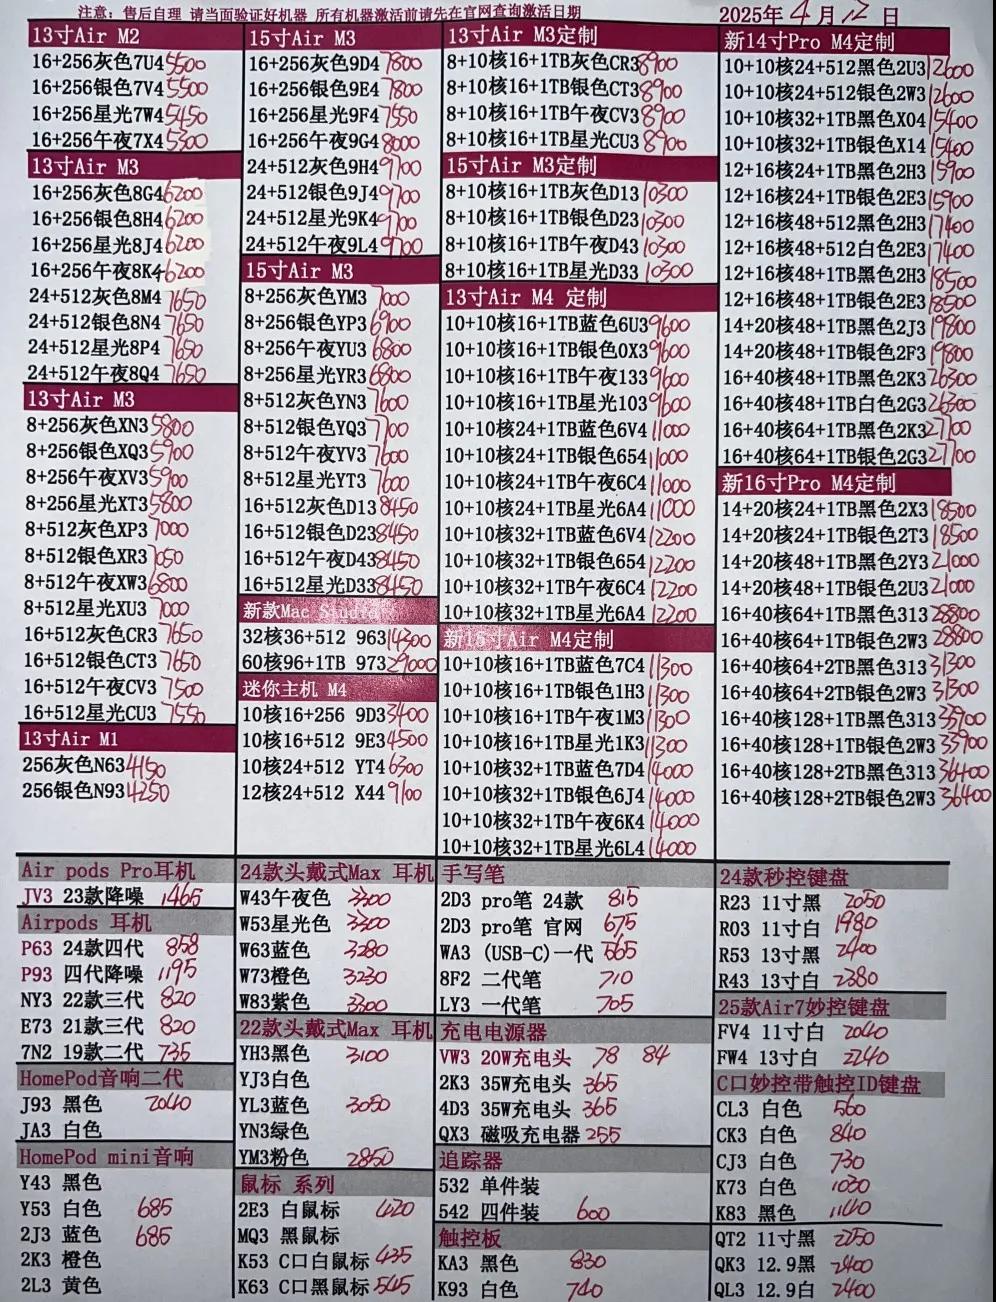 注意: 售后自理 请当面验证好机器 所有机器激活前请先在官网查询激活日期
2025年4月12日
13寸Air M2
16+256灰色7U4 5500
16+256银色7V4 5500
16+256星光7W4 5450
16+256午夜7X4 5300
13寸Air M3
16+256灰色8G4 6200
16+256银色8H4 6200
16+256星光8J4 6200
16+256午夜8K4 6200
24+512灰色8M4 7650
24+512银色8N4 7650
24+512星光8P4 7650
24+512午夜8Q4 7650
13寸Air M3
8+256灰色XN3 5800
8+256银色XQ3 5900
8+256午夜XV3 5900
8+256星光XT3 5800
8+512灰色XP3 7000
8+512银色XR3 7050
8+512午夜XW3 6800
8+512星光XU3 7000
16+512灰色CR3 7650
16+512银色CT3 7650
16+512午夜CV3 7500
16+512星光CU3 7550
13寸Air M1
256灰色N63 4150
256银色N93 4250
15寸Air M3
16+256灰色9D4 7800
16+256银色9E4 7800
16+256星光9F4 7550
16+256午夜9G4 8000
24+512灰色9H4 9700
24+512银色9J4 9700
24+512星光9K4 9700
24+512午夜9L4 9700
15寸Air M3
8+256灰色YM3 7000
8+256银色YP3 6900
8+256午夜YU3 6800
8+256星光YR3 6800
8+512灰色YN3 7600
8+512银色YQ3 7700
8+512午夜YV3 7600
8+512星光YT3 7600
16+512灰色D13 8450
16+512银色D23 8450
16+512午夜D43 8450
16+512星光D33 8450
新款Mac Studio
32核36+512 963 14300
60核96+1TB 973 29000
迷你主机 M4
10核16+256 9D3 3400
10核16+512 9E3 4500
10核24+512 YT4 6300
12核24+512 X44 9100
13寸Air M3定制
8+10核16+1TB灰色CR3 8900
8+10核16+1TB银色CT3 8900
8+10核16+1TB午夜CV3 8900
8+10核16+1TB星光CU3 8900
15寸Air M3定制
8+10核16+1TB灰色D13 10300
8+10核16+1TB银色D23 10300
8+10核16+1TB午夜D43 10300
8+10核16+1TB星光D33 10300
13寸Air M4 定制
10+10核16+1TB蓝色6U3 9600
10+10核16+1TB银色0X3 9600
10+10核16+1TB午夜133 9600
10+10核16+1TB星光103 9600
10+10核24+1TB蓝色6V4 11000
10+10核24+1TB银色654 11000
10+10核24+1TB午夜6C4 11000
10+10核24+1TB星光6A4 11000
10+10核32+1TB蓝色6V4 12200
10+10核32+1TB银色654 12200
10+10核32+1TB午夜6C4 12200
10+10核32+1TB星光6A4 12200
新15寸Air M4定制
10+10核16+1TB蓝色7C4 11300
10+10核16+1TB银色1H3 11300
10+10核16+1TB午夜1M3 11300
10+10核16+1TB星光1K3 11300
10+10核32+1TB蓝色7D4 14000
10+10核32+1TB银色6J4 14000
10+10核32+1TB午夜6K4 14000
10+10核32+1TB星光6L4 14000
新14寸Pro M4定制
10+10核24+512黑色2U3 12600
10+10核24+512银色2W3 12600
10+10核32+1TB黑色X04 15400
10+10核32+1TB银色X14 15400
12+16核24+1TB黑色2H3 15900
12+16核24+1TB银色2E3 15900
12+16核48+512黑色2H3 17400
12+16核48+512白色2E3 17400
12+16核48+1TB黑色2H3 18500
12+16核48+1TB银色2E3 18500
14+20核48+1TB黑色2J3 19800
14+20核48+1TB银色2F3 19800
16+40核48+1TB黑色2K3 26300
16+40核48+1TB白色2G3 26300
16+40核64+1TB黑色2K3 27700
16+40核64+1TB银色2G3 27700
新16寸Pro M4定制
14+20核24+1TB黑色2X3 18500
14+20核24+1TB银色2T3 18500
14+20核48+1TB黑色2Y3 21000
14+20核48+1TB银色2U3 21000
16+40核64+1TB黑色313 28800
16+40核64+1TB银色2W3 28800
16+40核64+2TB黑色313 31300
16+40核64+2TB银色2W3 31300
16+40核128+1TB黑色313 33700
16+40核128+1TB银色2W3 33700
16+40核128+2TB黑色313 36400
16+40核128+2TB银色2W3 36400
Air pods Pro耳机
JV3 23款降噪 1465
Airpods 耳机
P63 24款四代 858
P93 四代降噪 1195
NY3 22款三代 820
E73 21款三代 820
7N2 19款二代 735
HomePod音响二代
J93 黑色 2040
JA3 白色
HomePod mini音响
Y43 黑色
Y53 白色 685
2J3 蓝色 685
2K3 橙色
2L3 黄色
24款头戴式Max 耳机
W43午夜色 3300
W53星光色 3300
W63蓝色 3280
W73橙色 3230
W83紫色 3300
22款头戴式Max 耳机
YH3黑色 3100
YJ3白色
YL3蓝色 3050
YN3绿色
YM3粉色 2850
鼠标 系列
2E3 白鼠标 420
MQ3 黑鼠标
K53 C口白鼠标 435
K63 C口黑鼠标 545
手写笔
2D3 pro笔 24款 815
2D3 pro笔 官网 675
WA3 (USB-C)一代 565
8F2 二代笔 710
LY3 一代笔 705
充电电源器
VW3 20W充电头 78 84
2K3 35W充电头 365
4D3 35W充电头 365
QX3 磁吸充电器 255
追踪器
532 单件装
542 四件装 600
触控板
KA3 黑色 830
K93 白色 740
24款秒控键盘
R23 11寸黑 2050
R03 11寸白 1980
R53 13寸黑 2400
R43 13寸白 2380
25款Air7妙控键盘
FV4 11寸白 2040
FW4 13寸白 2240
C口妙控带触控ID键盘
CL3 白色 560
CK3 白色 840
CJ3 白色 730
K73 白色 1030
K83 黑色 1140
QT2 11寸黑 2250
QK3 12.9黑 2400
QL3 12.9白 2400